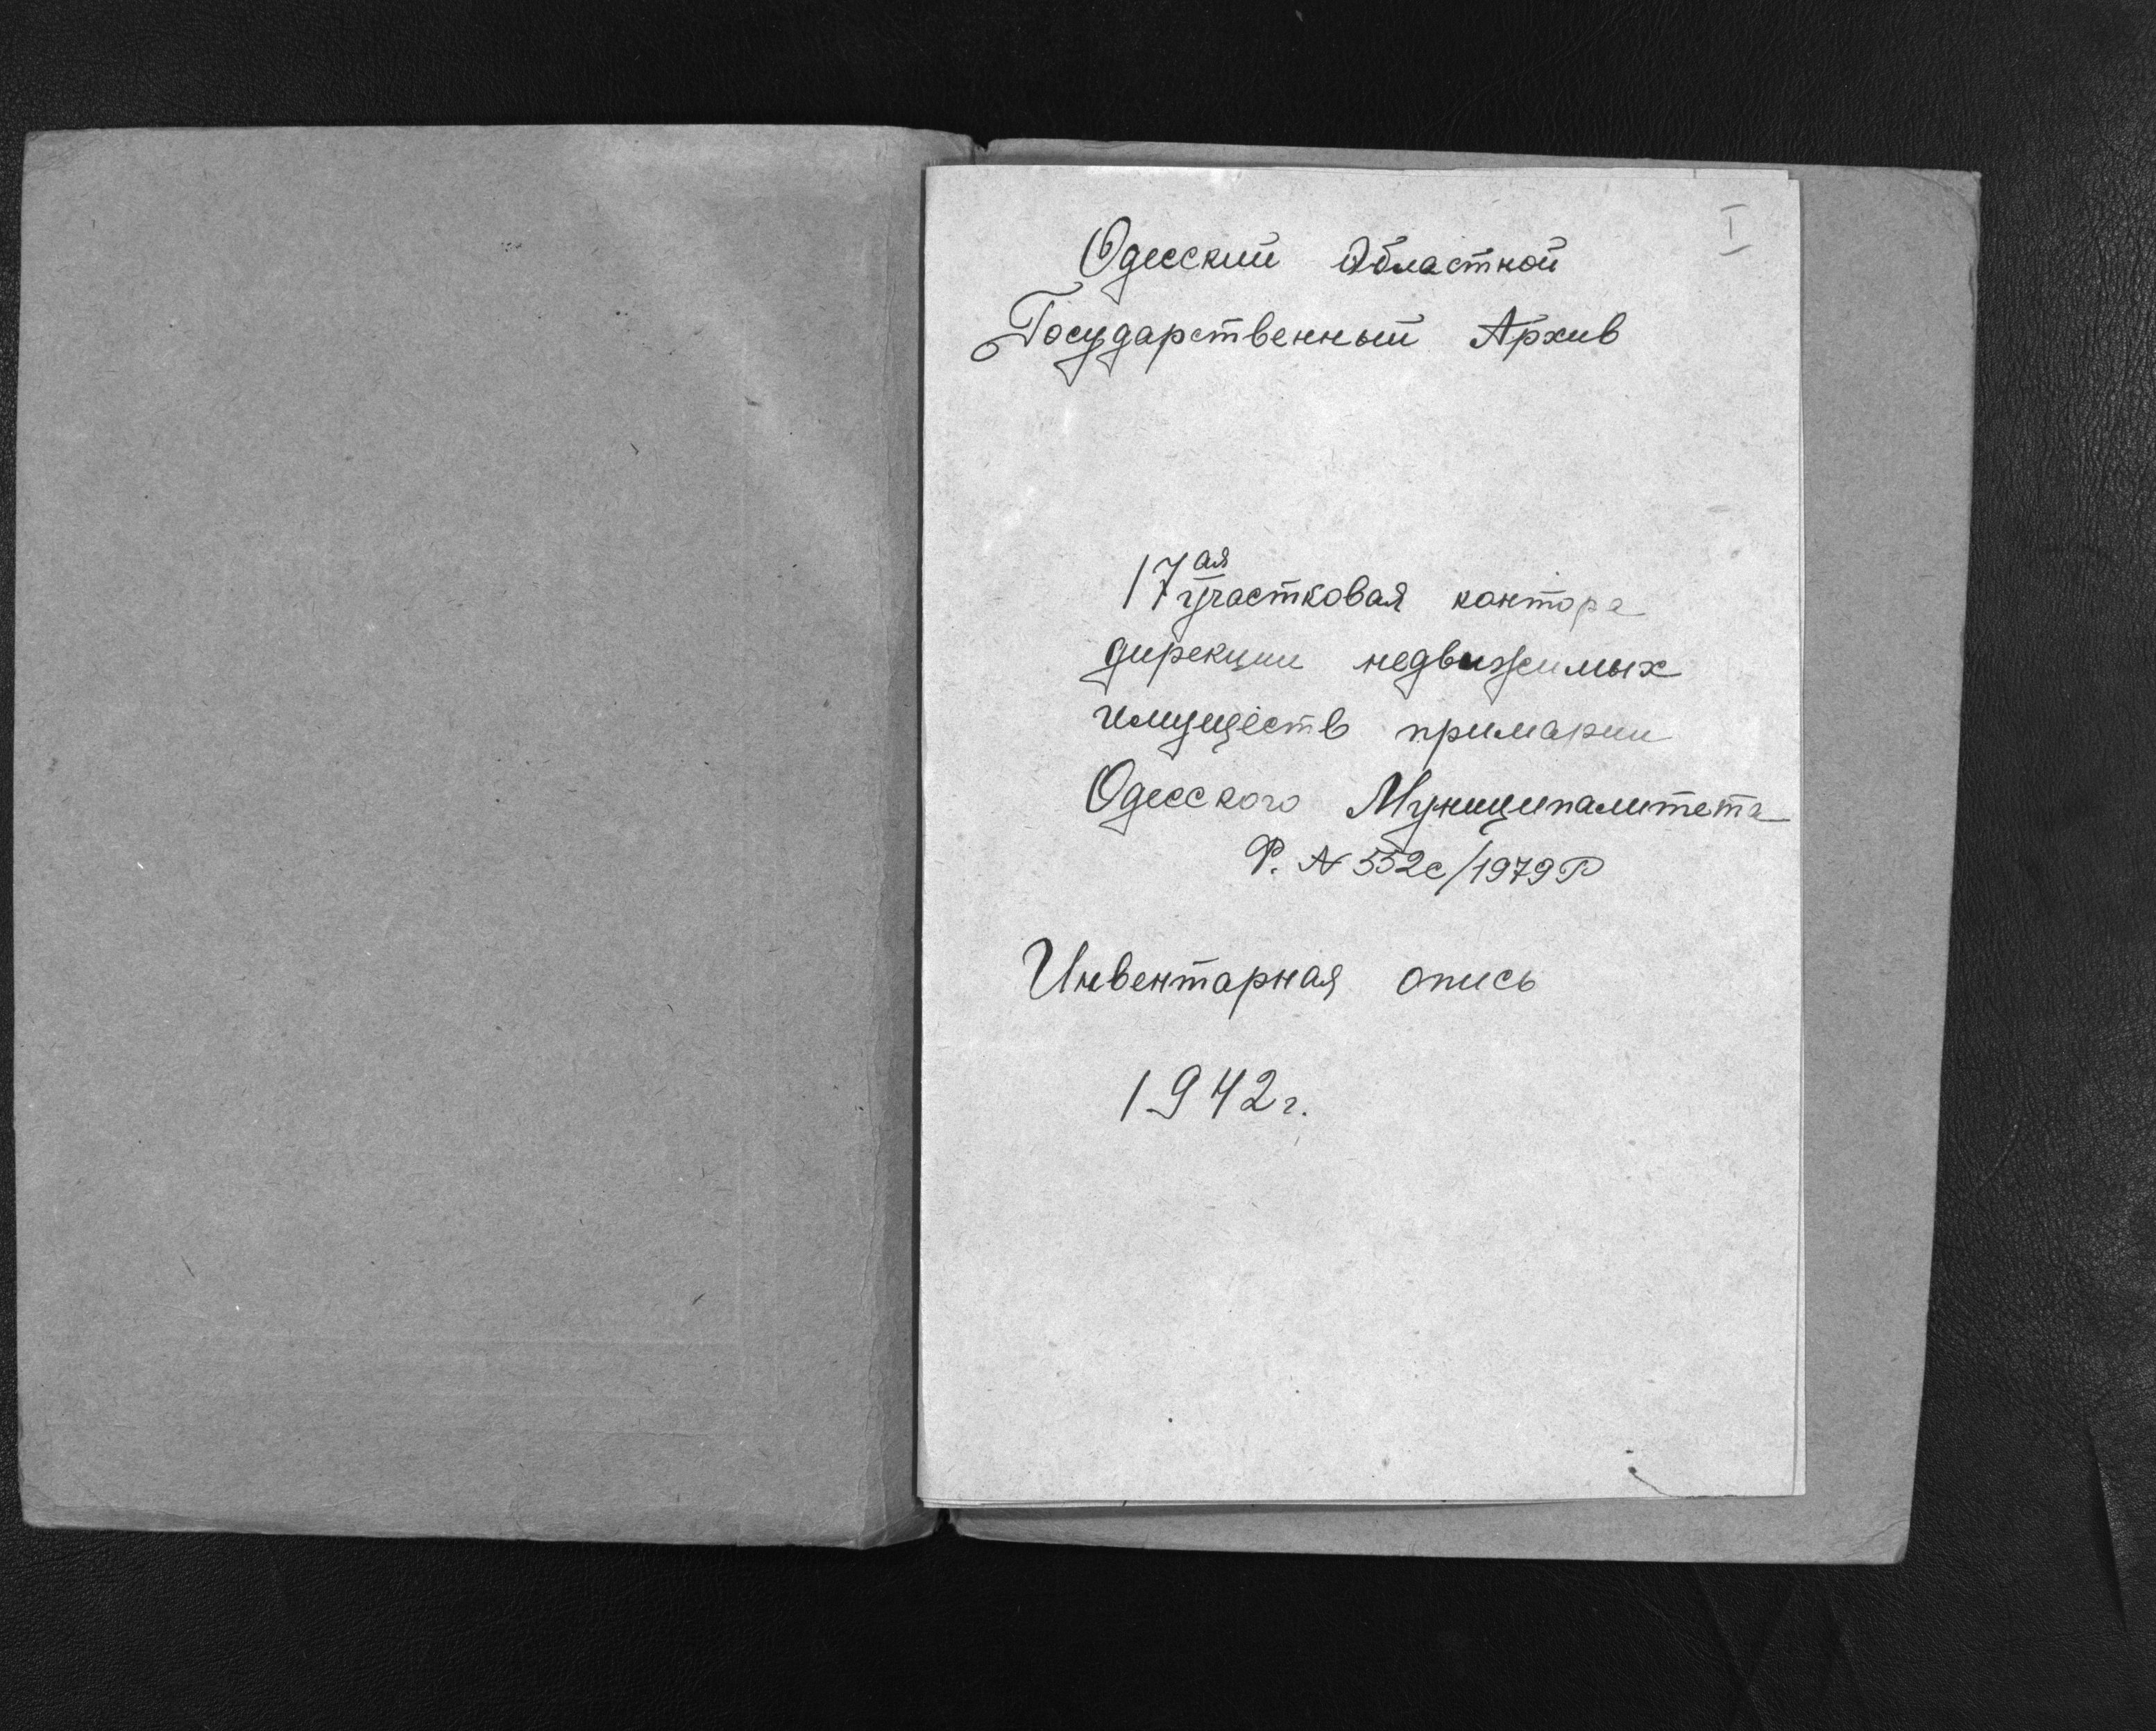 I
Одесский Областной
Государственный Архив
17ая участковая контора
дирекции недвижимых
имуществ примарии
Одесского Муниципалитета
Ф. № 552с/1979Р
Инвентарная опись
1942г.